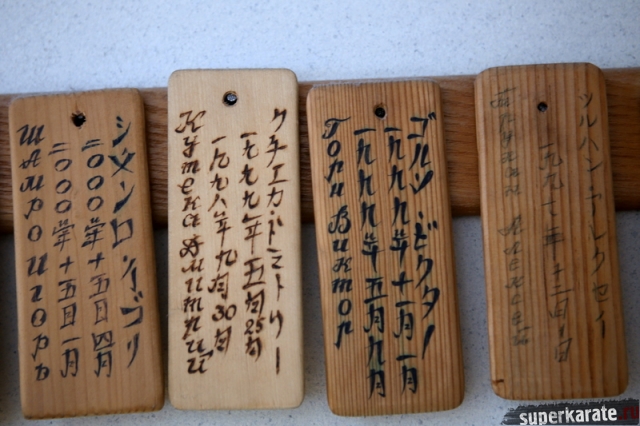 イゴリ
二〇〇〇年十五日四月
二〇〇〇年十五日一月
Игорь
クチエカ・ドミトリー
一九九九年五月25日
一九九八年九月30日
Дмитрий
ゴルン・ビクター
一九九九年十一月一月
一九九九年五月九月
Виктор
ツルハン・アレクセイ
一九九七年十二月
Алексей
superkarate.ru